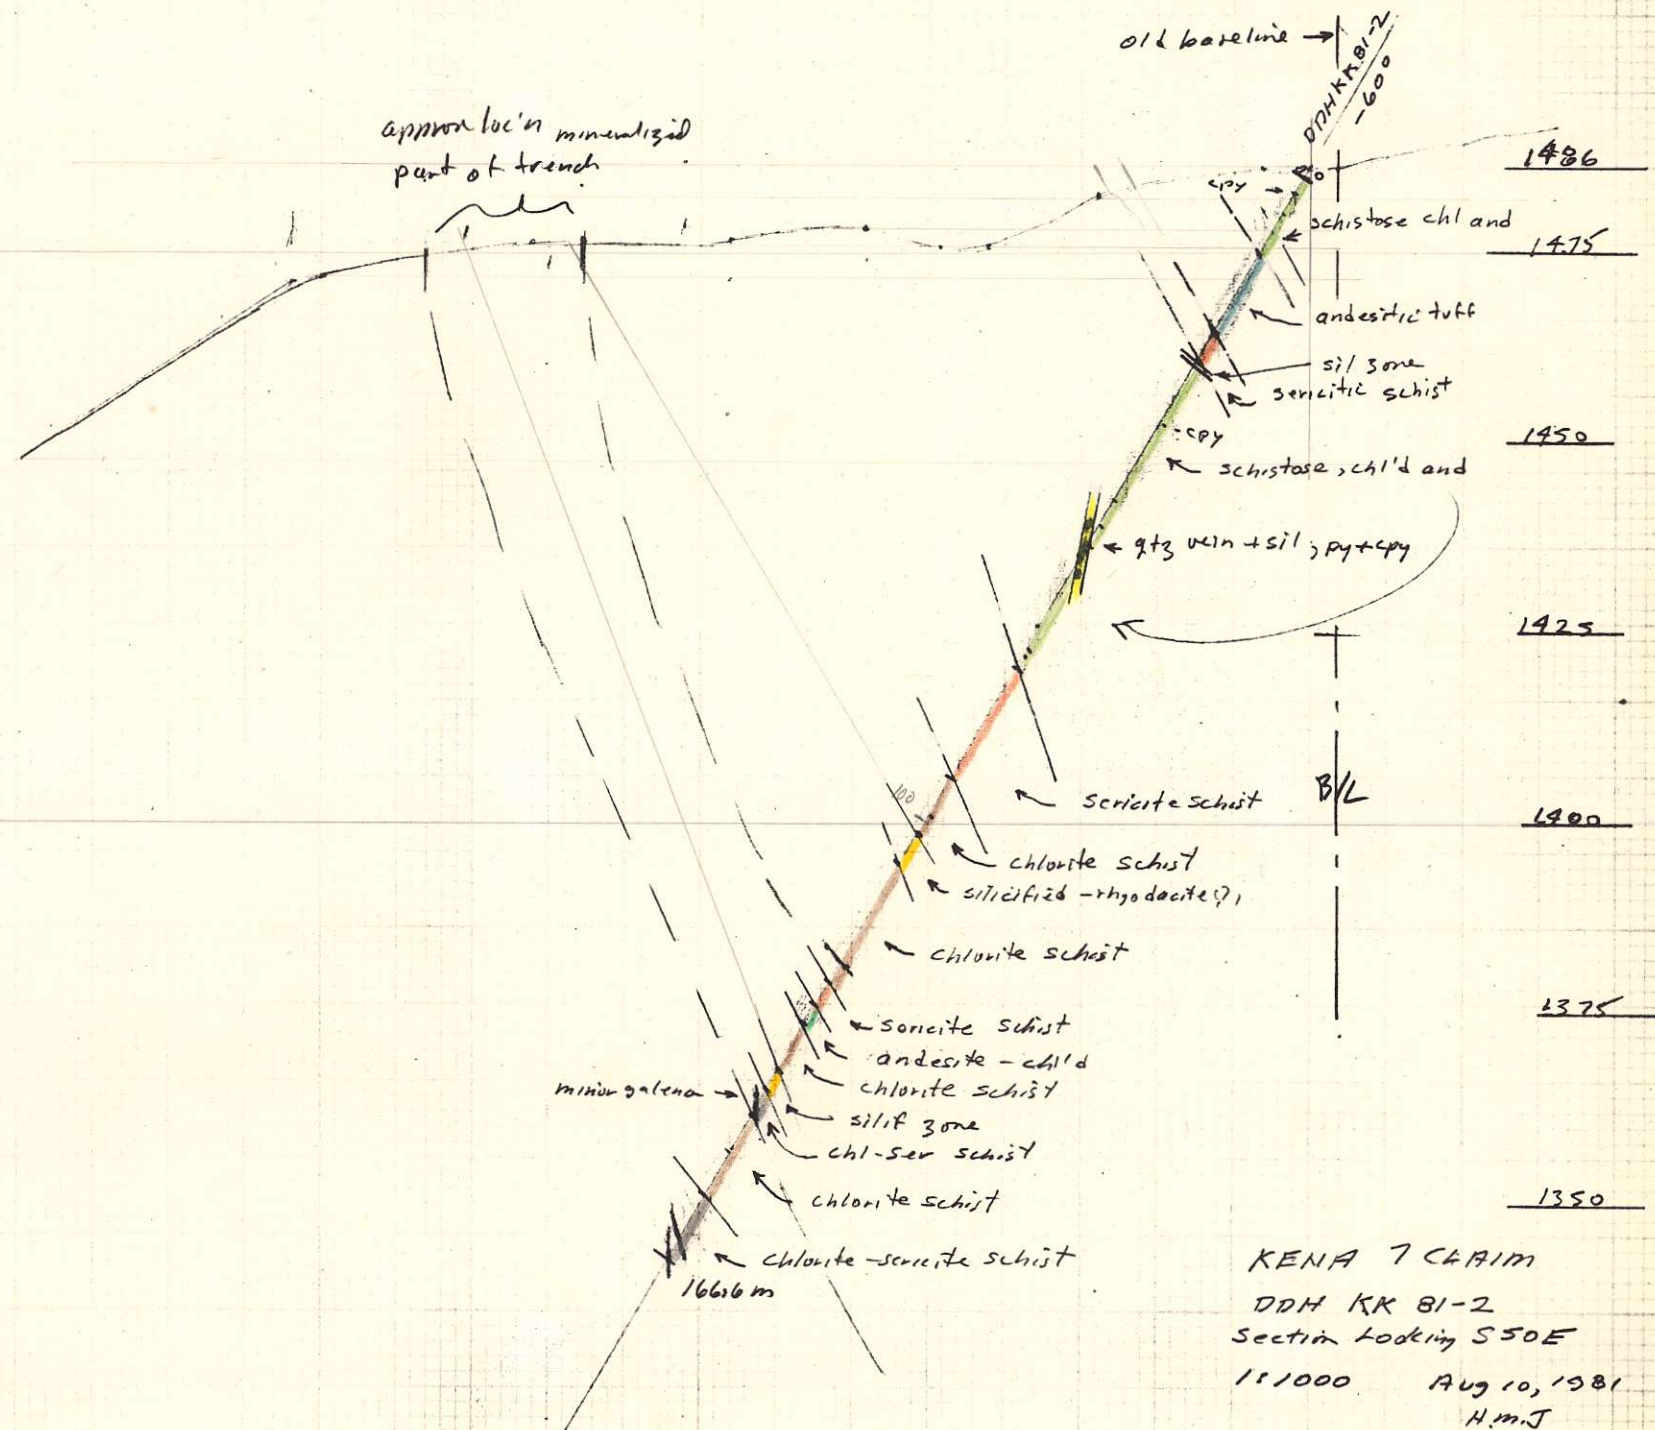 old baseline
DDH KK 81-2
-60°
approx loc'n mineralized
part of trench
1486
cpy
schistose chl and
1475
andesitic tuff
sil zone
sericitic schist
cpy
1450
schistose, chl'd and
qtz vein + sil; py+cpy
1425
B/L
100
sericite schist
1400
chlorite schist
silicified - rhyodacite(?)
chlorite schist
1375
sericite schist
andesite - chl'd
minor galena
chlorite schist
silif zone
chl-ser schist
chlorite schist
1350
chlorite-sericite schist
166.6 m
KENA 7 CLAIM
DDH KK 81-2
Section Looking S50E
1:1000 Aug 10, 1981
H.M.J